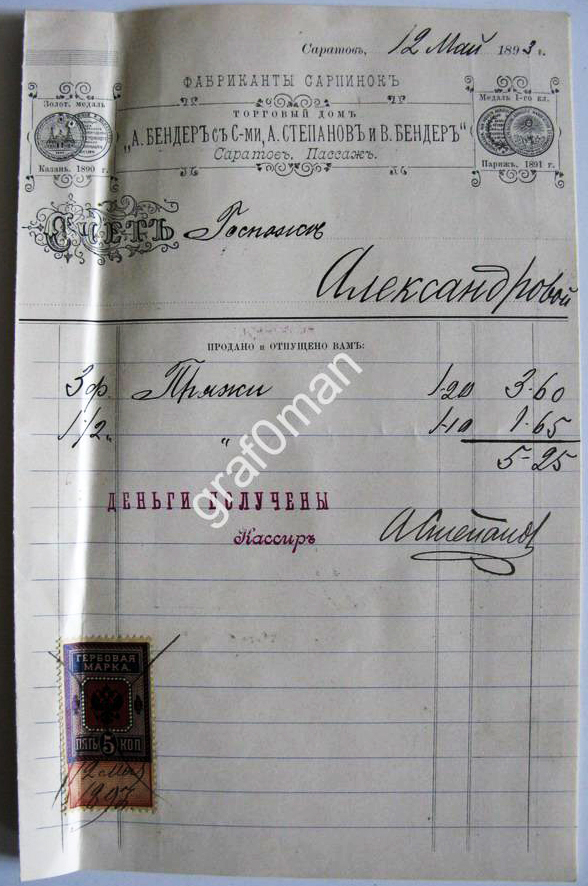 Саратовъ, 12 Май 1893 г.
ФАБРИКАНТЫ САРПИНОКЪ
Золот. медаль
Казань. 1890 г.
ТОРГОВЫЙ ДОМЪ
„А. БЕНДЕРЪ съ С-ми, А. СТЕПАНОВЪ и В. БЕНДЕРЪ"
Саратовъ, Пассажъ.
Медаль 1-го кл.
Парижъ. 1891 г.
Счетъ Госпожѣ
Александровой
ПРОДАНО и ОТПУЩЕНО ВАМЪ:
3 ф. Пряжи 1-20 3-60
1 1/2 " „ 1-10 1-65
5-25
ДЕНЬГИ ПОЛУЧЕНЫ
Кассиръ АСтепанов
graf0man
ГЕРБОВАЯ
МАРКА
ПЯТЬ 5 КОП
12 Май
1893